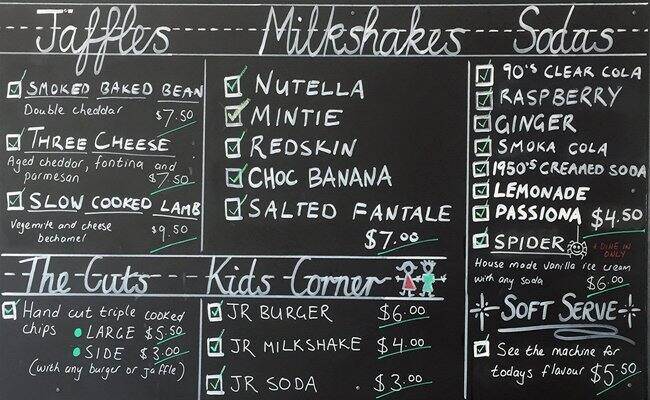 Jaffles
SMOKED BAKED BEAN
Double cheddar
$7.50
THREE CHEESE
Aged cheddar, fontina and
parmesan $7.50
SLOW COOKED LAMB
Vegemite and cheese
bechamel $9.50
The Cuts
Hand cut triple cooked
chips • LARGE $5.50
• SIDE $3.00
(with any burger or jaffle)
Milkshakes
NUTELLA
MINTIE
REDSKIN
CHOC BANANA
SALTED FANTALE
$7.00
Kids Corner
JR BURGER $6.00
JR MILKSHAKE $4.00
JR SODA $3.00
Sodas
90's CLEAR COLA
RASPBERRY
GINGER
SMOKA COLA
1950's CREAMED SODA
LEMONADE
PASSIONA $4.50
SPIDER + DINE IN
ONLY
House made vanilla ice cream
with any soda $6.00
SOFT SERVE
See the machine for
todays flavour $5.50